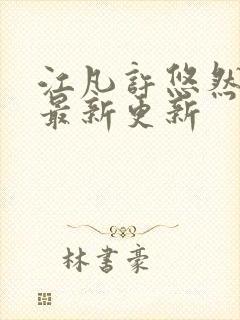 江凡许悠然
最新更新
林书豪